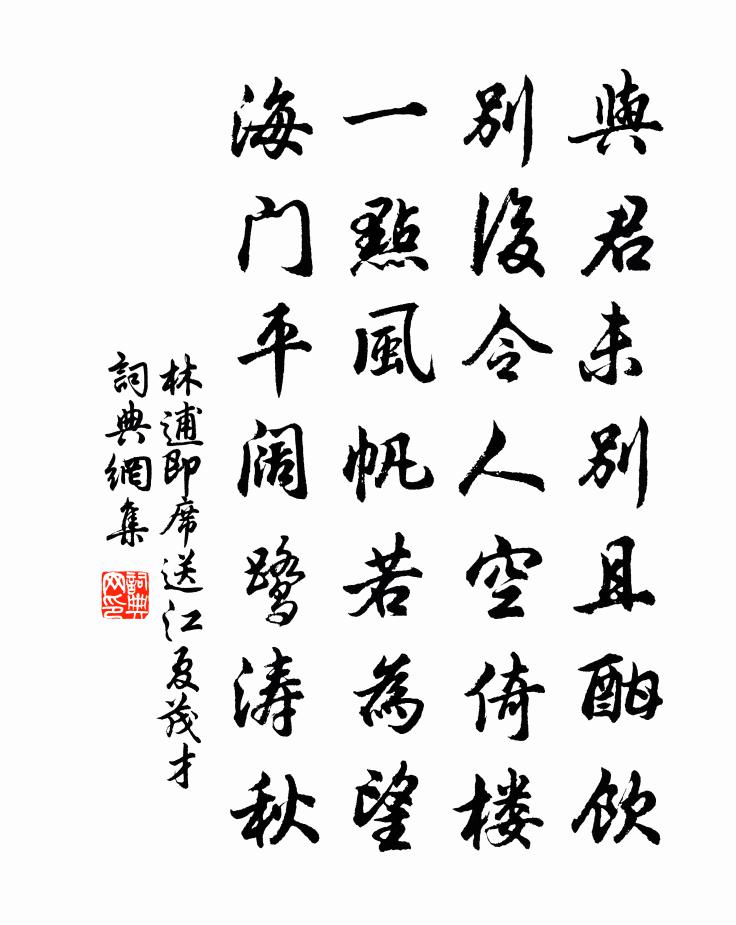 與君未別且酣飲
別後令人空倚楼
一點風帆若為望
海门平阔鹭涛秋
林逋即席送江夏茂才
詞典網集
詞典网印